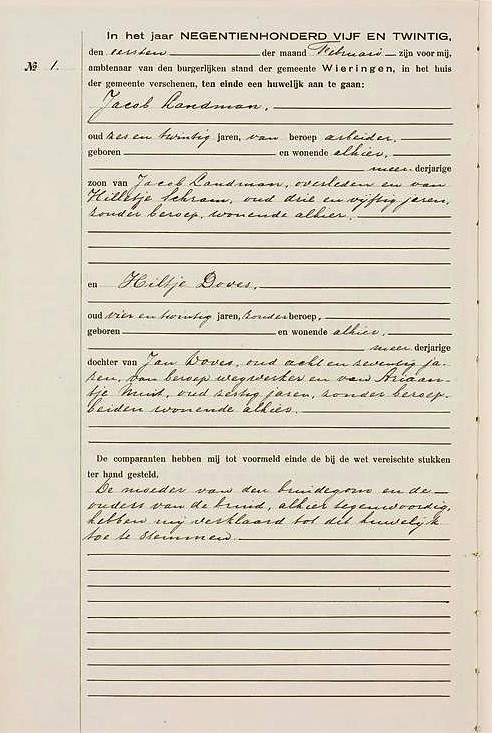 In het jaar NEGENTIENHONDERD VIJF EN TWINTIG,
den eersten der maand Februari zijn voor mij,
№ 1.
ambtenaar van den burgerlijken stand der gemeente Wieringen, in het huis
der gemeente verschenen, ten einde een huwelijk aan te gaan:
Jacob Landman,
oud zes en twintig jaren, van beroep arbeider,
geboren en wonende alhier,
meerderjarige
zoon van Jacob Landman, overleden en van
Hilletje Schram, oud drie en vijftig jaren,
zonder beroep, wonende alhier.
en Hiltje Doves,
oud vier en twintig jaren, zonder beroep,
geboren en wonende alhier,
meerderjarige
dochter van Jan Doves, oud acht en seventig ja-
ren, van beroep wegwerker en van Ariaan-
tje Muit, oud sestig jaren, zonder beroep,
beiden wonende alhier.
De comparanten hebben mij tot voormeld einde de bij de wet vereischte stukken
ter hand gesteld.
De moeder van den bruidegom en de
ouders van de bruid, alhier tegenwoordig,
hebben mij verklaard tot dit huwelijk
toe te stemmen.